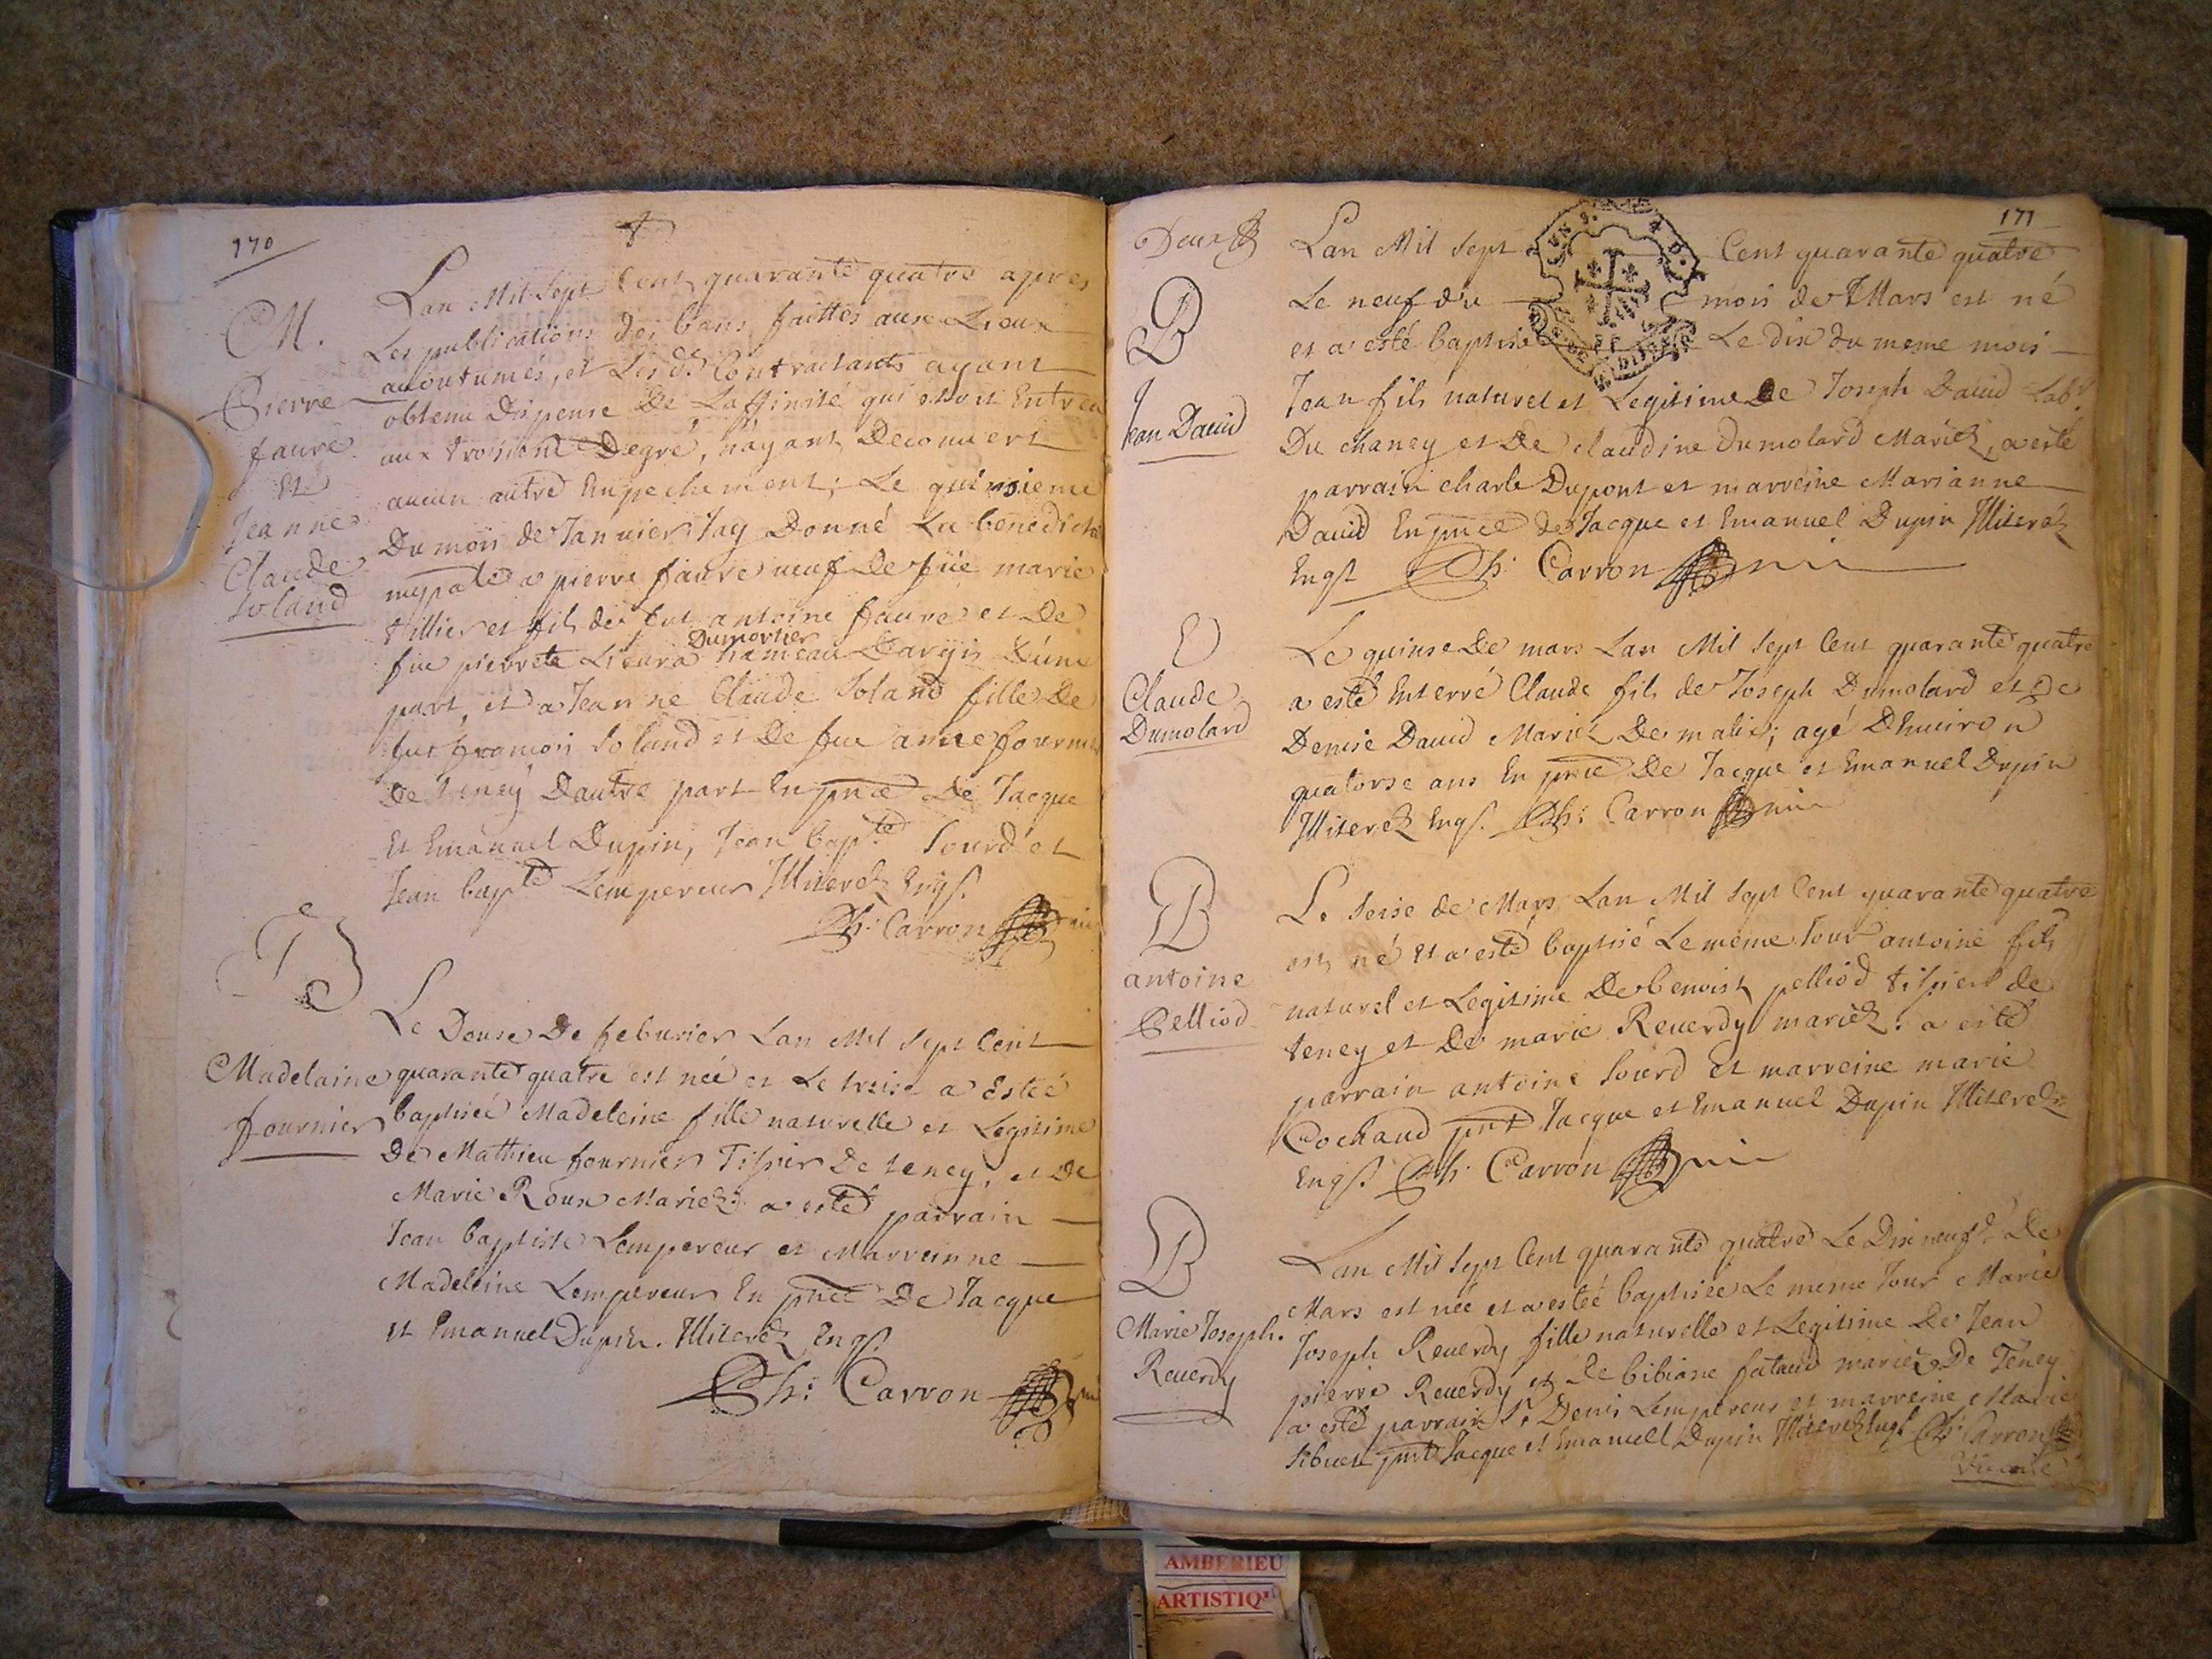 170
M.
Pierre
faure
Et
Jeanne
Claude
Soland
Lan Mil Sept Cent quarante quatre apres
Les publications des bans faittes aux Lieux
acoutumés, et Lesd. Contractants ayant
obtenu Dispense De Laffinité qui estoit Entreu
aux troisieme Degré, nayant Decouvert
aucun autre Empechement; Le quinsieme
Du mois de Janvier Jay Donné La benedict
nupale a pierre faure veuf de füe marie
tillier et fils de fut antoine faure et De
fue pierrete Lieura Dumortier hameau Dargis Dúne
part, et a Jeanne Claude Soland fille De
fut francois Soland et De fue anne fournie
De teney Dautre part En pnce De Jacque
Et Emanuel Dupin, Jean bapte Sourd et
Jean bapte Lempereur Illiterez Engs.
Ph: Carron
B
Madelaine
fournier
Le Douse De feburier Lan Mil Sept Cent
quarante quatre est née et Le treise a Estéé
baptisée Madeleine fille naturelle et Legitime
De Mathieu fournier Tissier De teney, et De
Marie Roux Mariez. a esté parrain
Jean baptiste Lempereur et Marreinne
Madeleine Lempereur En pnce De Jacque
et Emanuel Dupin. Illiterez Engs.
Ph: Carron
171
Deux
B
Jean David
Lan Mil Sept Cent quarante quatre
Le neuf du mois de Mars est né
et a esté baptisé Le dix du meme mois
Jean fils naturel et Legitime De Joseph David Labr
Du chaney et De claudine Dumolard Mariez, a esté
parrain charle Dupont et marreine Marianne
David En pnce de Jacque et Emanuel Dupin Illiterez
Engs Ph: Carron
E
Claude
Dumolard
Le quinse De mars Lan Mil Sept Cent quarante quatre
a esté Enterré Claude fils de Joseph Dumolard et De
Denise David Mariez De malix; agé Dhuiron
quatorse ans En pnce De Jacque et Emanuel Dupin
Illiterez Engs. Ph: Carron
B
antoine
Pelliod
Le Seise de Mars Lan Mil Sept Cent quarante quatre
est né Et a esté baptisé Le meme Jour antoine fils
naturel et Legitime De benoist pelliod tissier de
teney et De marie Reverdy mariez. a esté
parrain antoine Sourd Et marreine marie
Cochaud pnt Jacque et Emanuel Dupin Illiterez
Engs. Ph: Carron
B
Marie Joseph.
Reverdy
Lan Mil Sept Cent quarante quatre Le Dix neuf De
Mars est née et a estéé baptisée Le meme Jour Marie
Joseph Reverdy fille naturelle et Legitime De Jean
pierre Reverdy et De bibiane fataud mariez De Teney
a esté parrain Sr Denis Lempereur et marreine Marie
Sibuet pnt Jacque et Emanuel Dupin Illiterez Engs Ph: Carron
AMBERIEU
ARTISTIQ